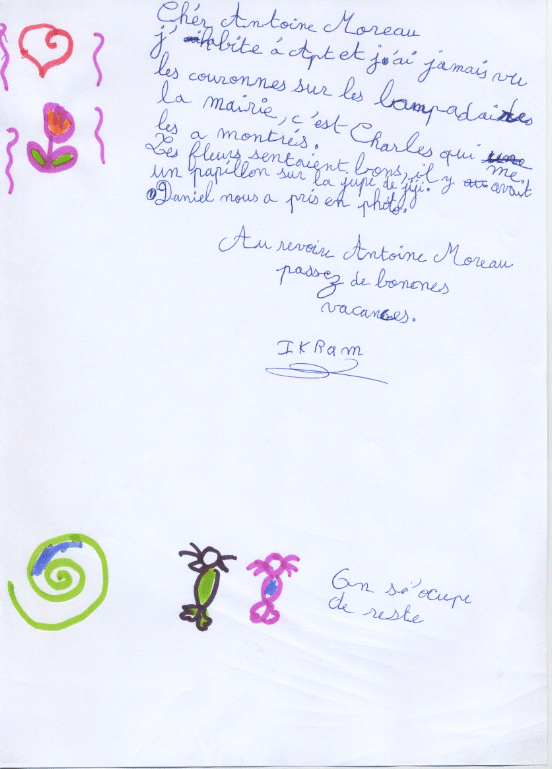 Chér Antoine Moreau
j'habite à Apt et j'ai jamais vu
les couronnes sur les lampadaires
la mairie, c'est Charles qui me
les a montrés.
Les fleurs sentaient bons, il y avait
un papillon sur la jupe de jiji.
Daniel nous a pris en photo.
Au revoire Antoine Moreau
passez de bonenes
vacances.
IKRam
On s'é'ocupe
de reste